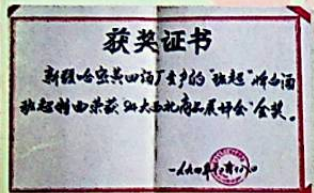 获奖证书
新疆哈密英四酒厂生产的"班超"牌名酒
班超特曲荣获'94大西北商品展评会'金奖。
一九九四年